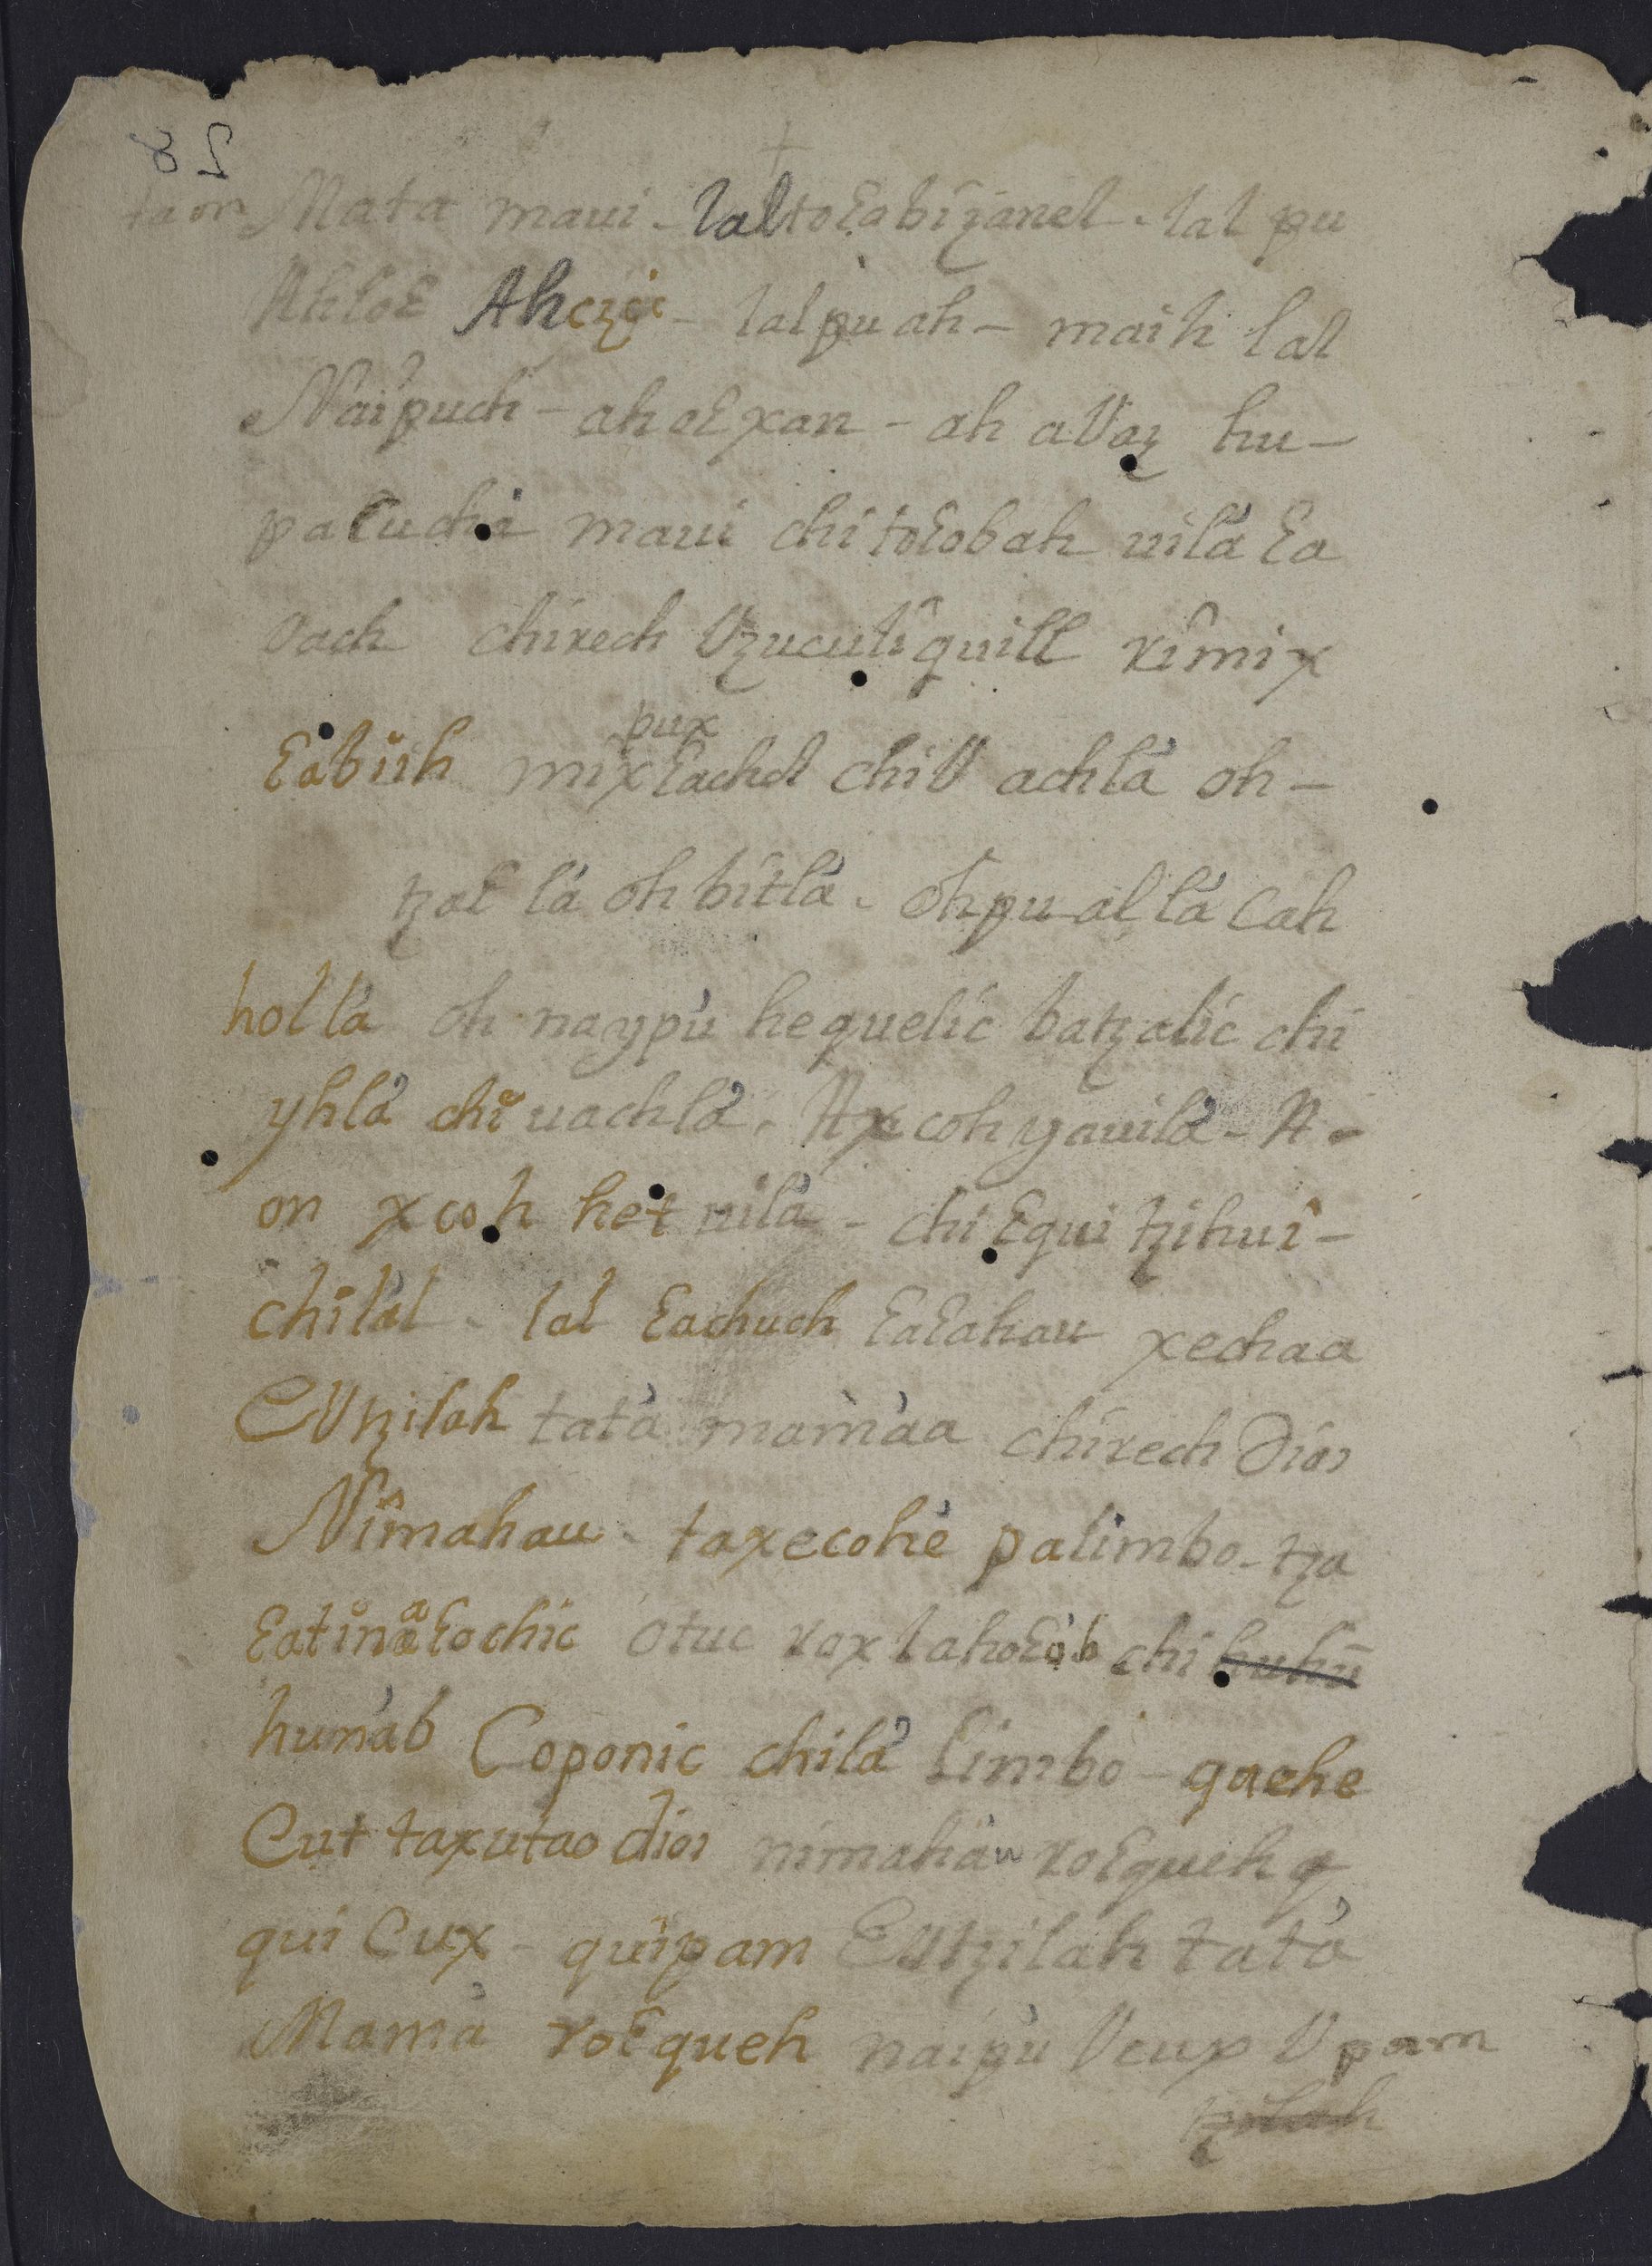 28
taon Mata maui - lal toεabiʒanel - lal pu
Ahloε Ahcʒic - lal pu ah - maih lal
Naipuch - ah aεxan - ah aVaʒ hu -
palucha maui chi toεobah uilá εa
vach chirech Vʒuculiquill rîmix
pux
εabuh mixεachal chiV achlá oh -
tʒaε lá oh bitlá. oh pu al lá cah
hol lá oh naypú hequelic batʒalic chi
yhlá chi uachlá. Ax coh yauilá - A -
on xcoh het uilá - chi εqui tʒihuî -
chilal - lal εachuch εaεahau xechaa
εVtʒilah tatá mamàa chirech Dios
Nîmahau - taxecohé palimbo - tʒa
a
εatinaεochic otuc rox lahoεàb chi huhū
hunàb Coponic chilá limbò - quehe
Cut taxutao dios nimahàu roεqueh q
qui Cux - quipam εutʒilah tatá
Mamà roεqueh naipù Vcux Vpam